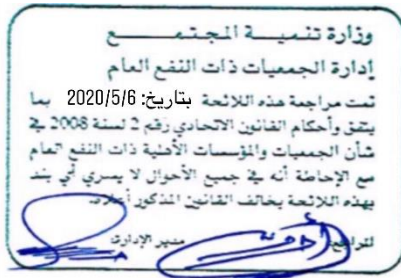 وزارة تنميــة المجتمــــع
إدارة الجمعيات ذات النفع العام
تمت مراجعة هذه اللائحة بتاريخ: 2020/5/6 بما
يتفق وأحكام القانون الاتحادي رقم 2 لسنة 2008 في
شأن الجمعيات والمؤسسات الأهلية ذات النفع العام
مع الإحاطة أنه في جميع الأحوال لا يسري أي بند
بهذه اللائحة يخالف القانون المذكور أعلاه.
المراجع مدير الإدارة